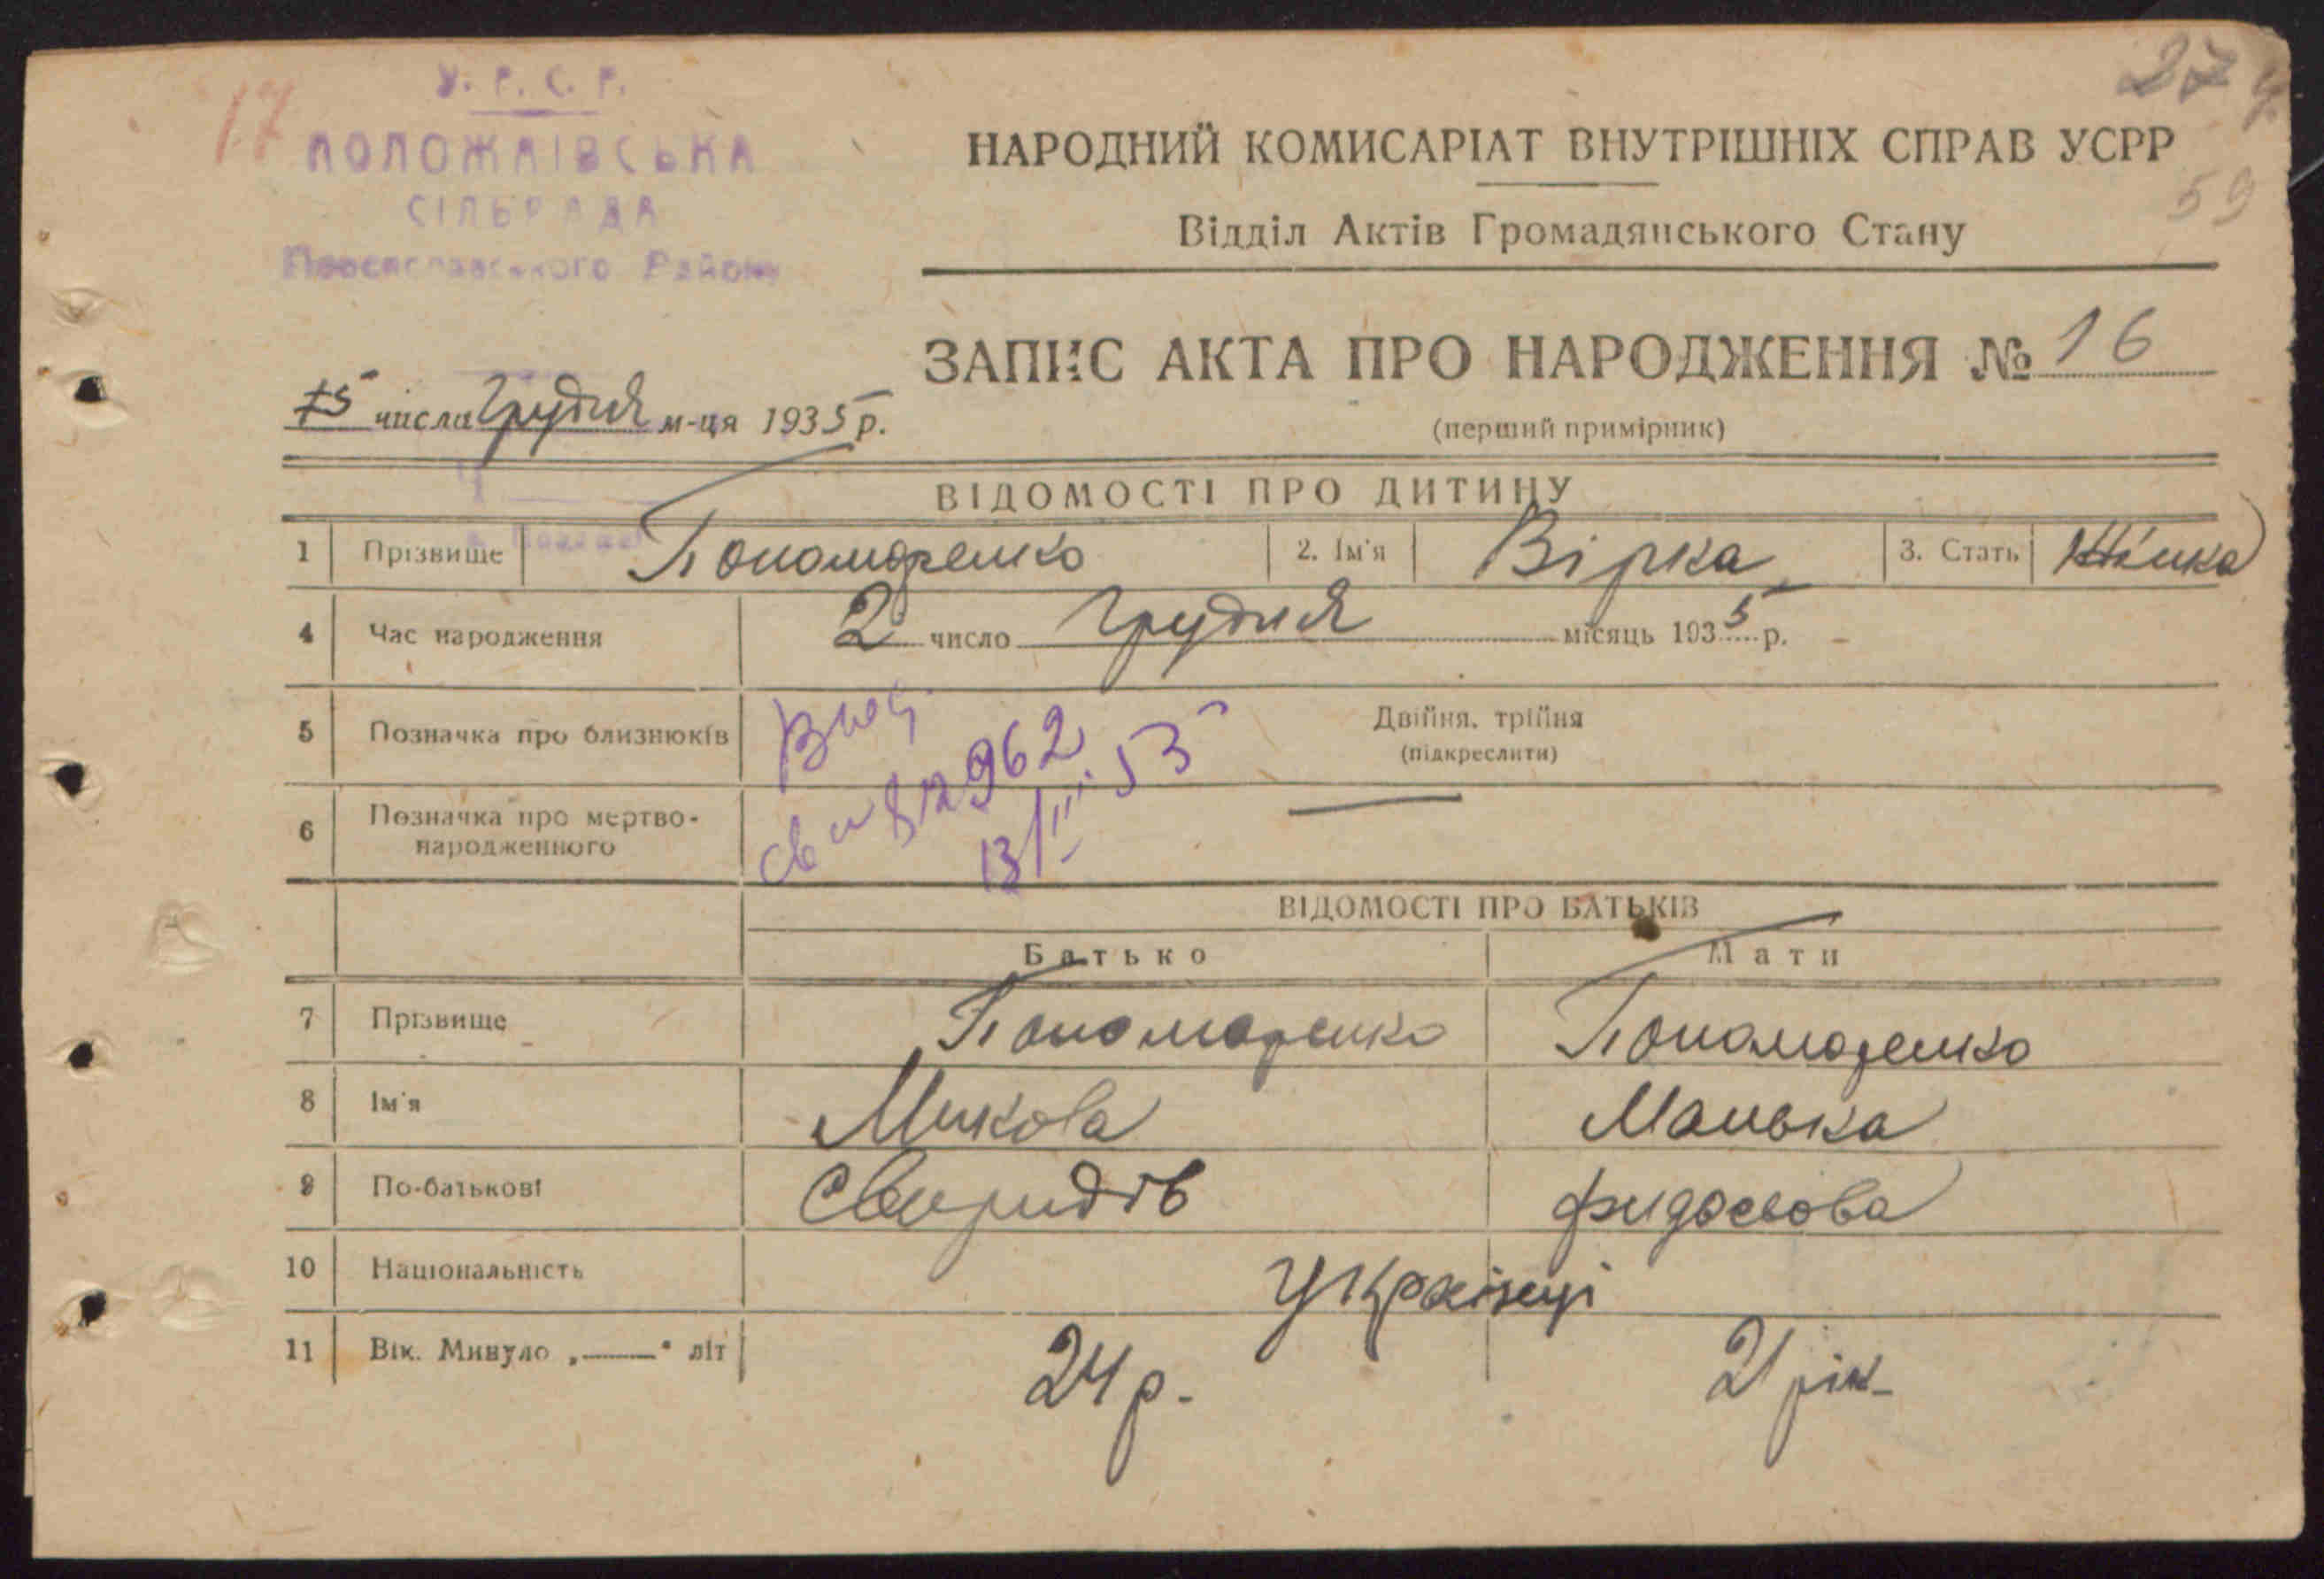 17
У. Р. С. Р.
ПОЛОЖАІВСЬКА
СІЛЬРАДА
Переяславського Району
27
59
НАРОДНИЙ КОМИСАРІАТ ВНУТРІШНІХ СПРАВ УСРР
Відділ Актів Громадянського Стану
ЗАПИС АКТА ПРО НАРОДЖЕННЯ № 16
(перший примірник)
числа Грудня м-ця 1935 р.
ВІДОМОСТІ ПРО ДИТИНУ
1 Прізвище Пономаренко 2. Ім'я Вірка 3. Стать Жінка
4 Час народження 2 число Грудня місяць 1935 р.
5 Позначка про близнюків Двійня, трійня
(підкреслити)
6 Позначка про мертво-
народженного
св 962
13/III 53
ВІДОМОСТІ ПРО БАТЬКІВ
Батько Мати
7 Прізвище Пономаренко Пономаренко
8 Ім'я Микола Манька
9 По-батькові Свиридів
10 Національність Украінці
11 Вік. Минуло „——“ літ 24 р. 21 рік